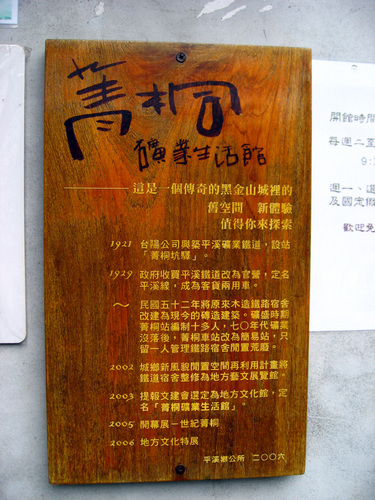 菁桐
礦業生活館
這是一個傳奇的黑金山城裡的
舊空間 新體驗
值得你來探索
1921 台陽公司興築平溪礦業鐵道，設站
「菁桐坑驛」。
1929 政府收買平溪鐵道改為官營，定名
平溪線，成為客貨兩用車。
～ 民國五十二年將原來木造鐵路宿舍
改建為現今的磚造建築。礦盛時期
菁桐站編制十多人，七〇年代礦業
沒落後，菁桐車站改為簡易站，只
留一人管理鐵路宿舍閒置荒廢。
2002 城鄉新風貌閒置空間再利用計畫將
鐵道宿舍整修為地方藝文展覽館。
2003 提報文建會選定為地方文化館，定
名「菁桐礦業生活館」。
2005 開幕展－世紀菁桐
2006 地方文化特展
平溪鄉公所 二〇〇六
開館時間
每週二至
9:
週一、
及國定
歡迎免